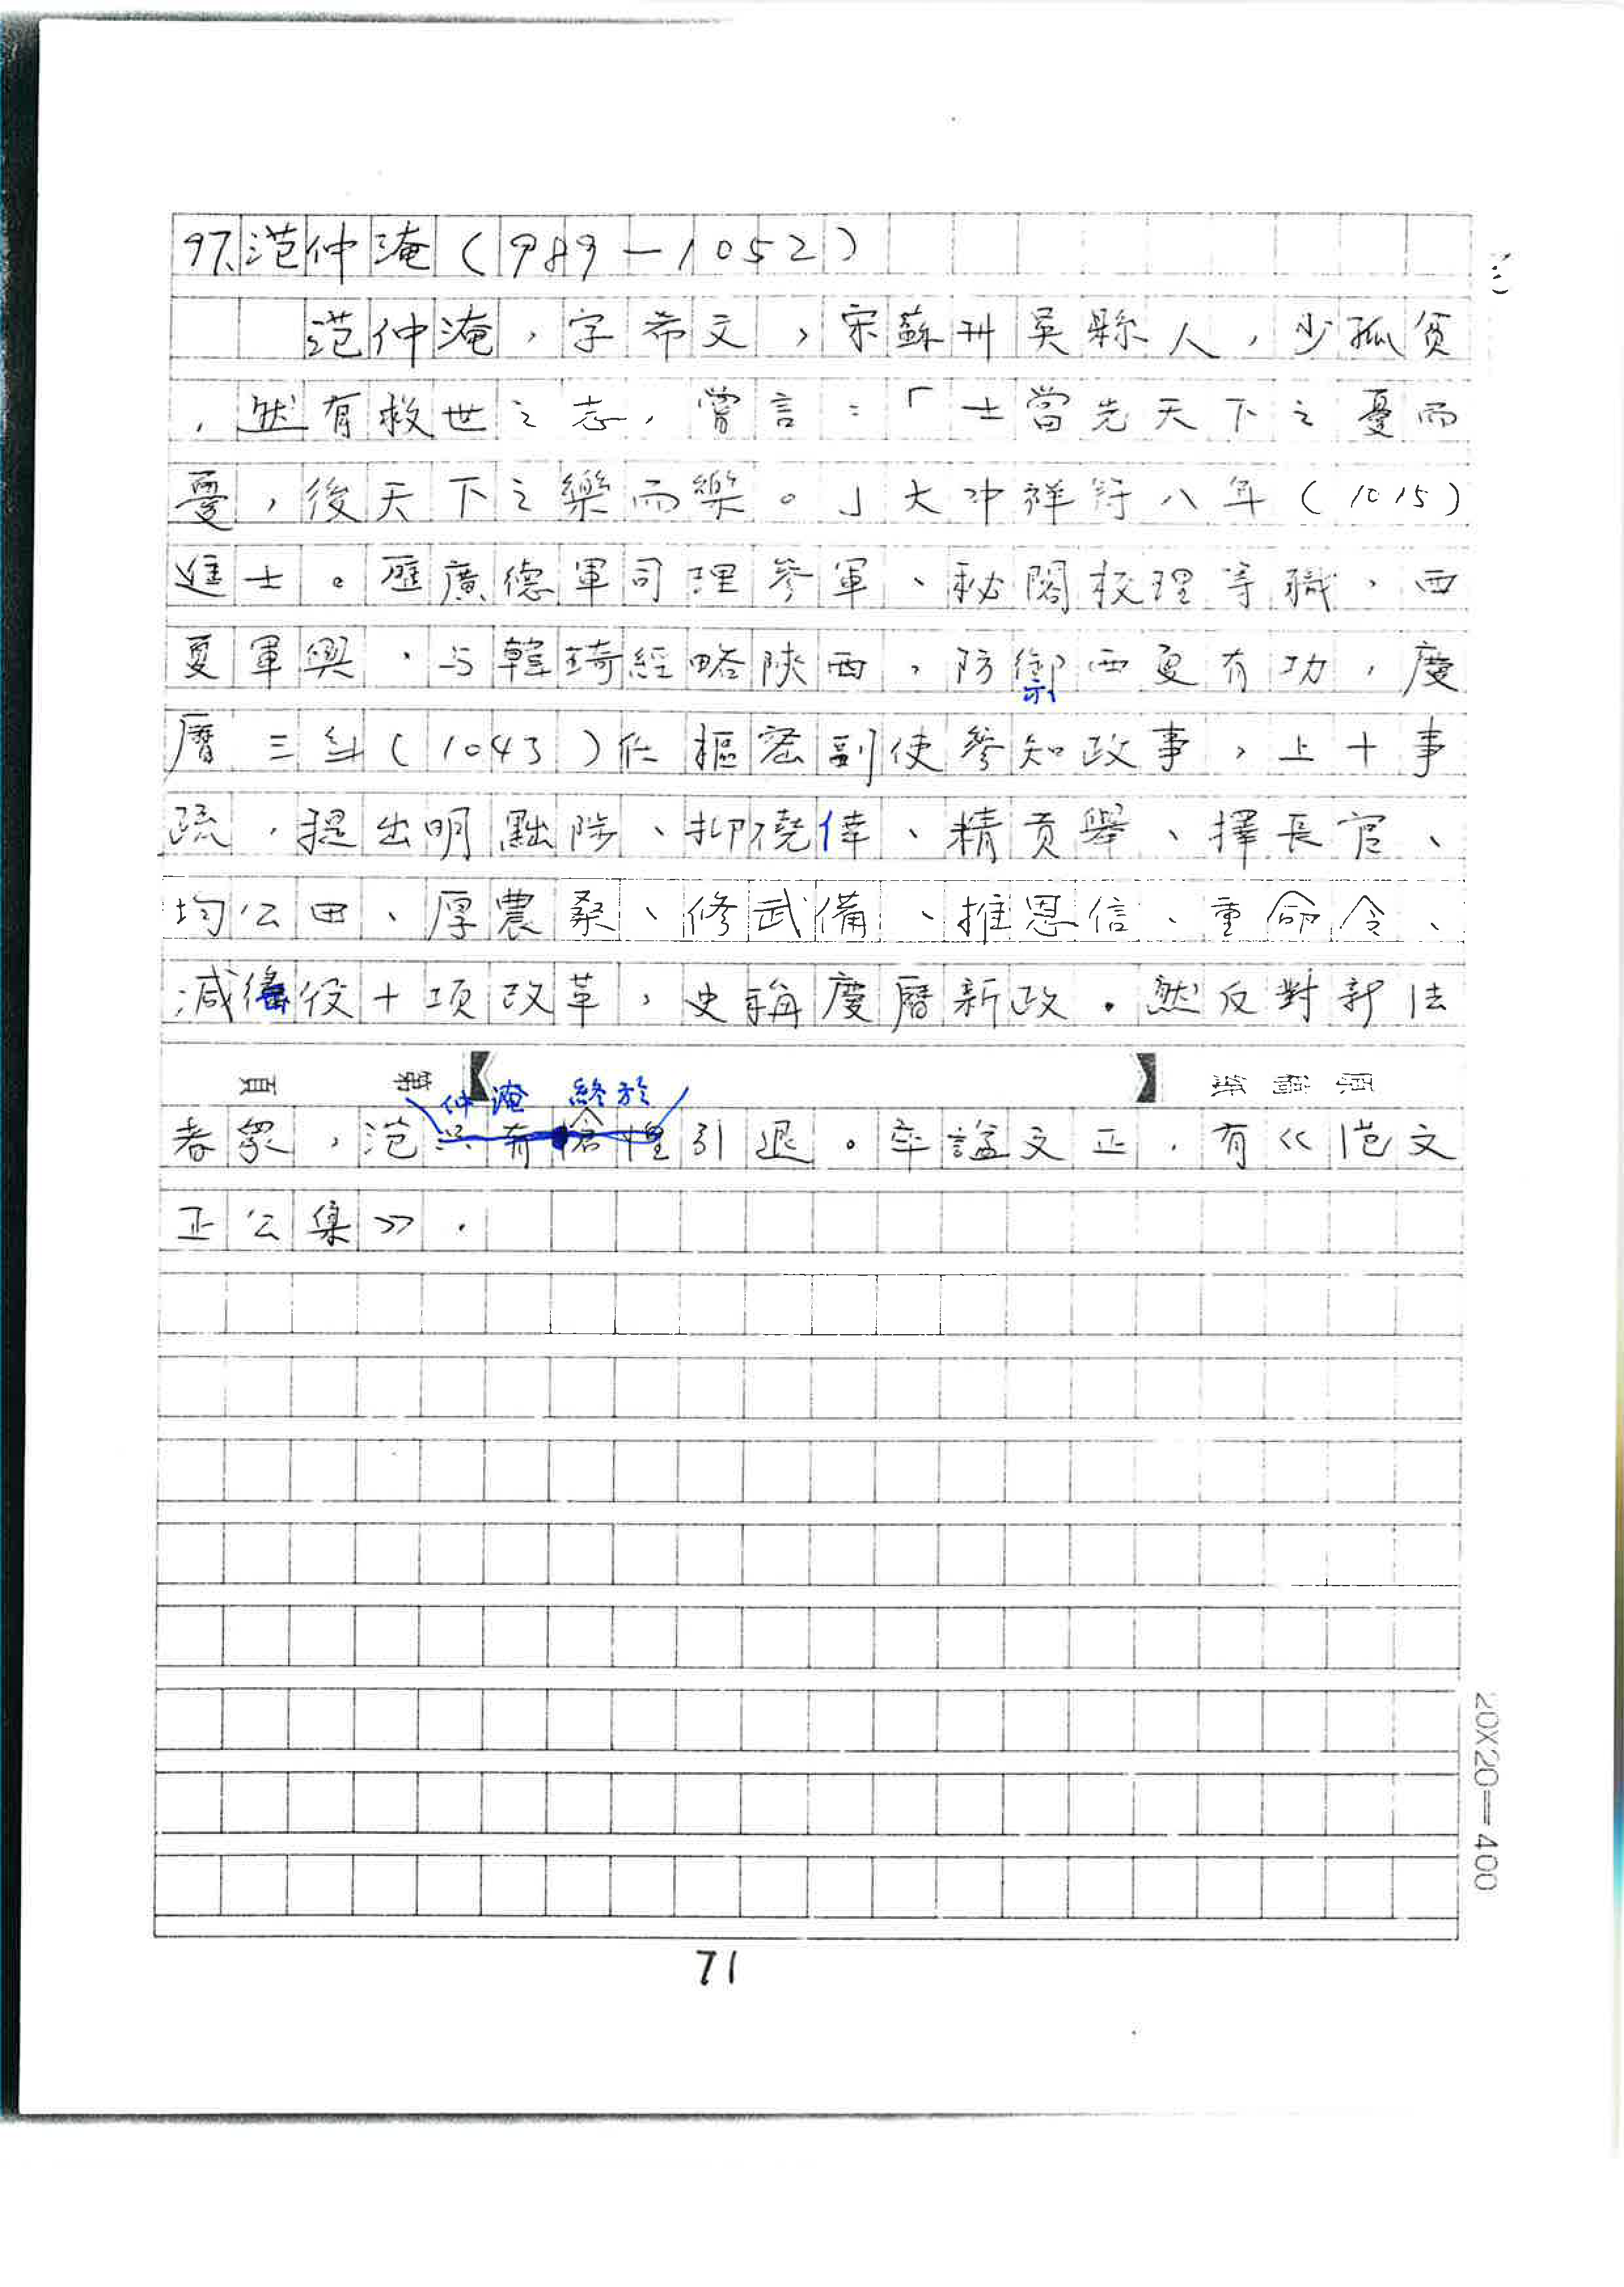 97.范仲淹(989—1052)
范仲淹，字希文，宋蘇州吳縣人，少孤貧
，然有救世之志，嘗言：「士當先天下之憂而
憂，後天下之樂而樂。」大中祥符八年(1015)
進士。歷廣德軍司理參軍、秘閣校理等職，西
夏軍興，与韓琦經略陝西，防禦西夏有功，慶
曆三年(1043)任樞密副使參知政事，上十事
疏，提出明黜陟、抑僥倖、精貢舉、擇長官、
均公田、厚農桑、修武備、推恩信、重命令、
減徭役十項改革，史稱慶曆新政。然反對新法
頁 第 原稿紙
仲淹 終於
者眾，范引退。卒諡文正，有《范文
正公集》。
20X20=400
71